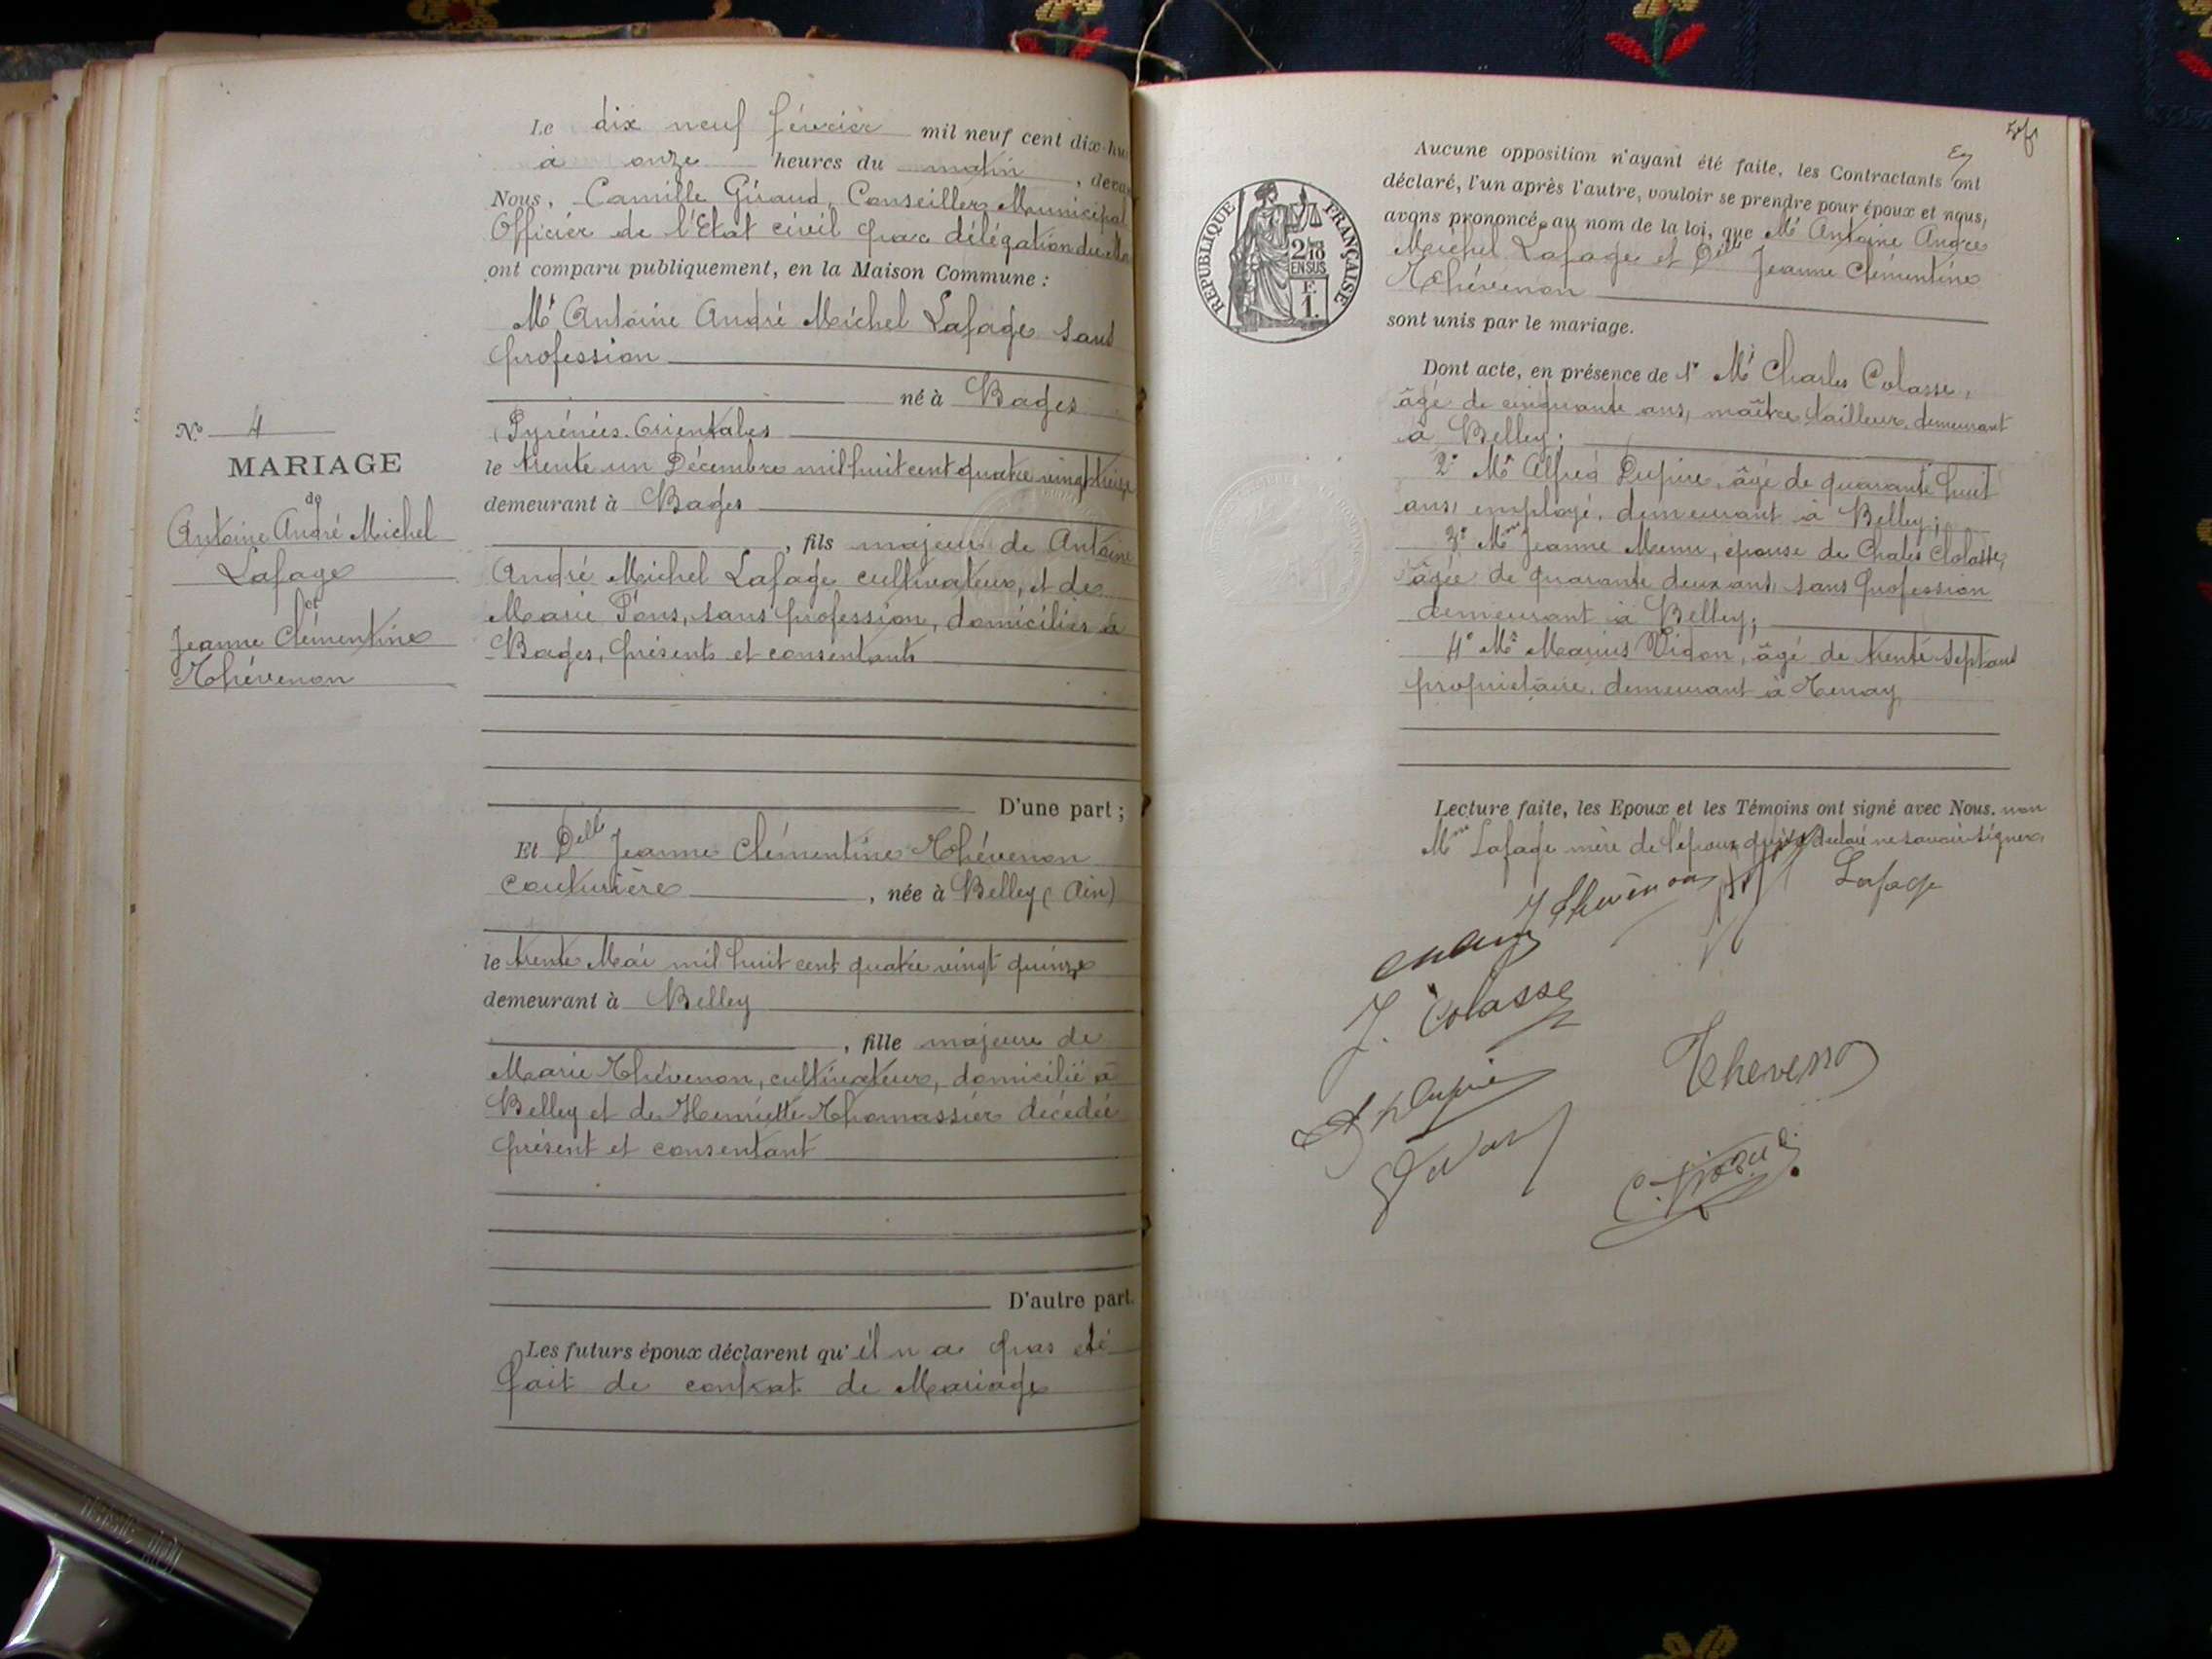 Le dix neuf février mil neuf cent dix-hu
à onze heures du matin, deva
Nous, Camille Giraud, Conseiller Municipal
Officier de l'Etat civil par délégation du Ma
ont comparu publiquement, en la Maison Commune :
Mr Antoine André Michel Lafage sans
profession
né à Bages
Pyrénées-Orientales
le trente un Décembre mil huit cent quatre vingt
demeurant à Bages
, fils majeur de Antoine
André Michel Lafage cultivateur, et de
Marie Pons, sans profession, domiciliés à
Bages, présents et consentants
D'une part ;
Et Delle Jeanne Clémentine Thévenon
couturière, née à Belley (Ain)
le trente Mai mil huit cent quatre vingt quinze
demeurant à Belley
, fille majeure de
Marie Thévenon, cultivateur, domicilié à
Belley et de Henriette Thomassier décédée
présent et consentant
D'autre part.
Les futurs époux déclarent qu'il n a pas été
fait de contrat de Mariage
No 4
MARIAGE
de
Antoine André Michel
Lafage
et
Jeanne Clémentine
Thévenon
Aucune opposition n'ayant été faite, les Contractants ont
déclaré, l'un après l'autre, vouloir se prendre pour époux et nous,
avons prononcé, au nom de la loi, que Mr Antoine André
Michel Lafage et Delle Jeanne Clémentine
Thévenon
sont unis par le mariage.
RÉPUBLIQUE FRANÇAISE
2/10
EN SUS
F.
1.
Dont acte, en présence de 1° Mr Charles Colasse,
âgé de cinquante ans, maître tailleur, demeurant
à Belley;
2° Mr Alfred Dupire, âgé de quarante huit
ans, employé, demeurant à Belley;
3° Mme Jeanne Menu, épouse de Chales Colasse,
âgée de quarante deux ans, sans profession
demeurant à Belley;
4° Mr Marius Vidon, âgé de trente sept ans
propriétaire, demeurant à Tenay
Lecture faite, les Epoux et les Témoins ont signé avec Nous, non
Mme Lafage mère de l'époux qui a déclaré ne savoir signer.
J Thévenon
Lafage
J. Colasse
Thevenon